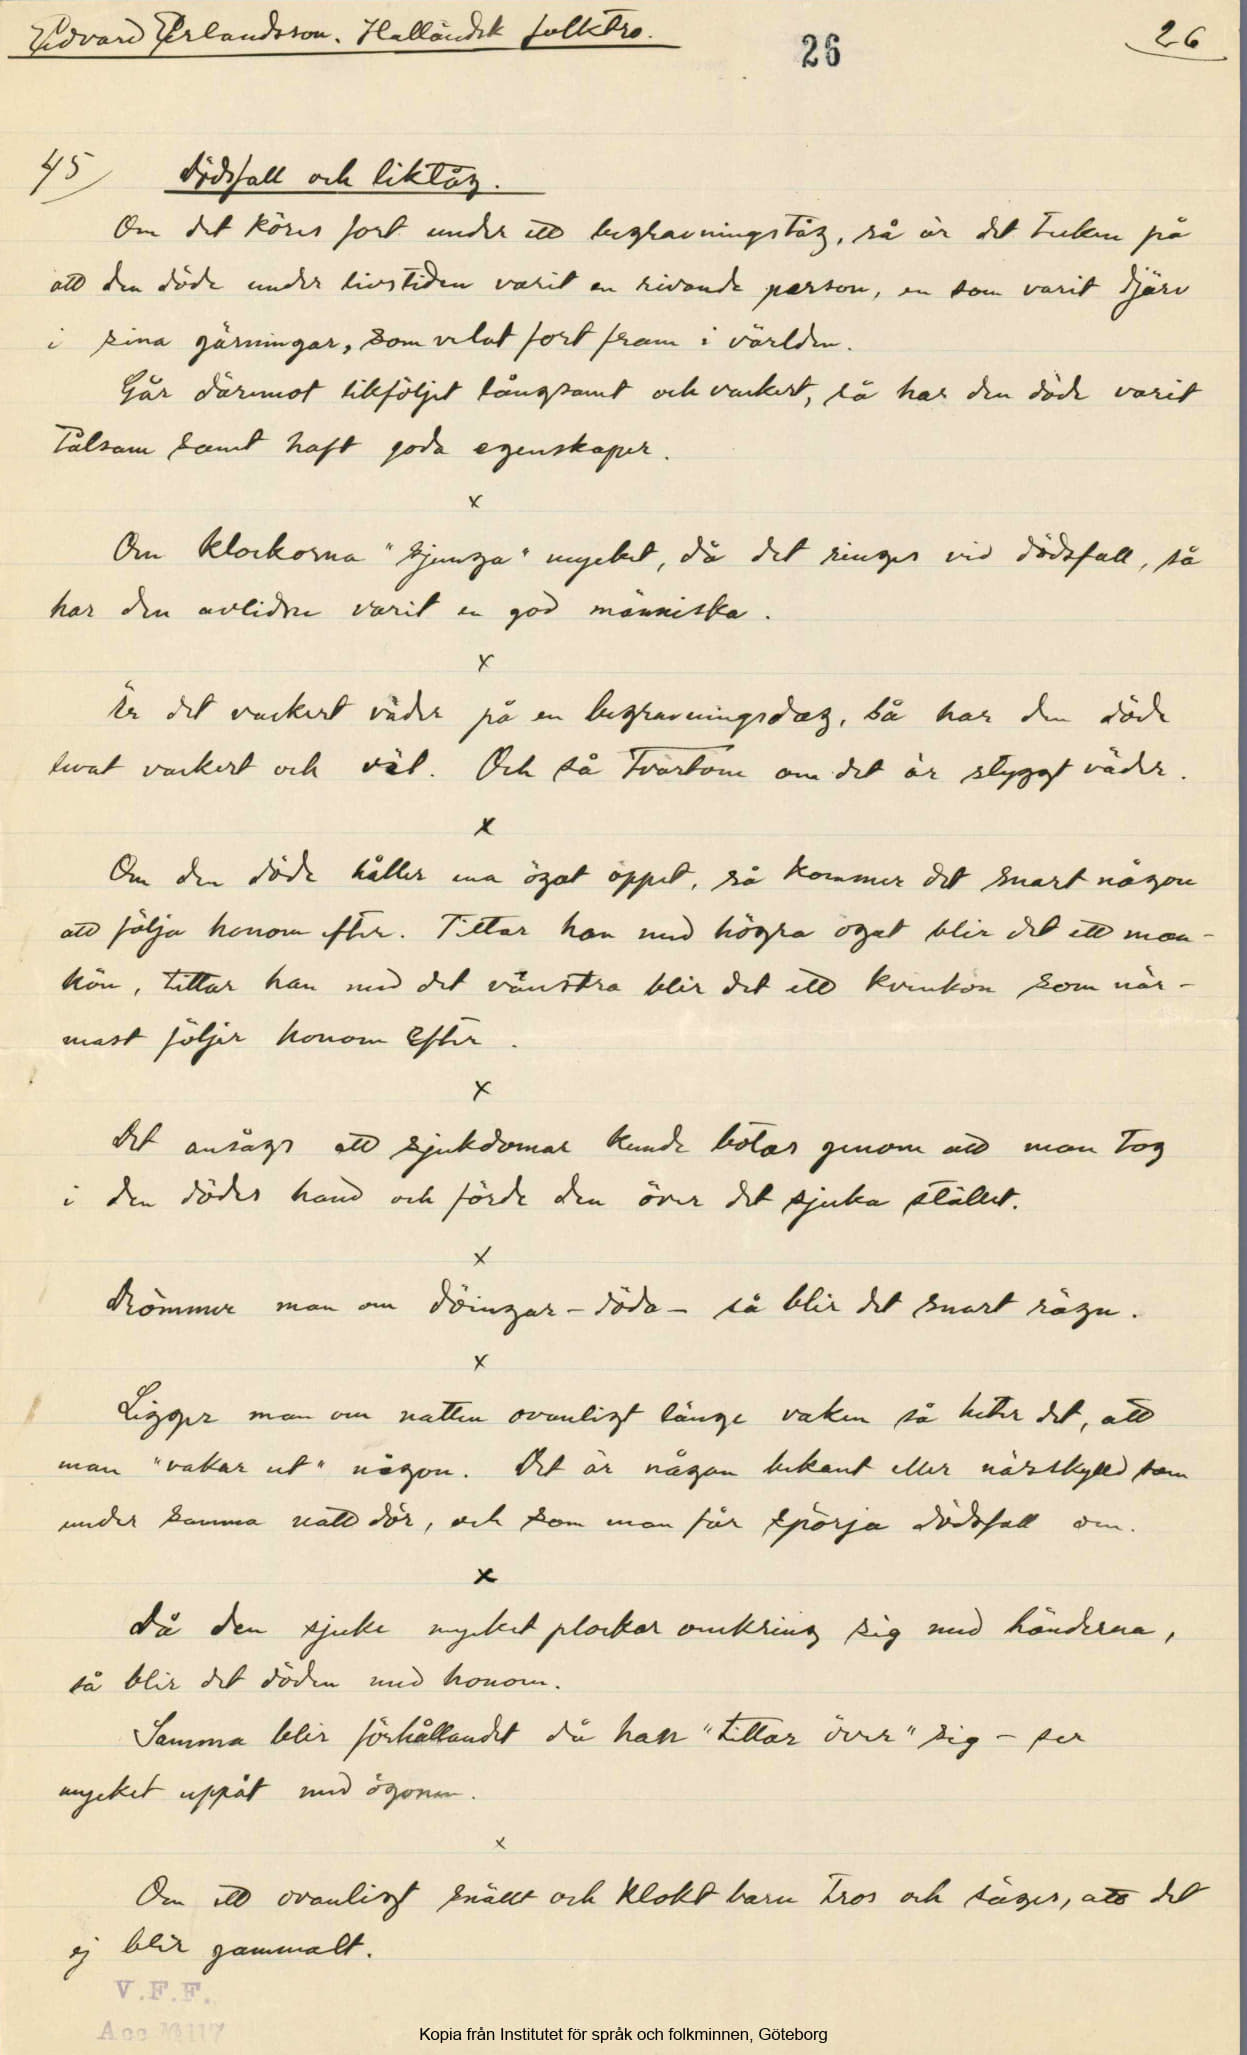 Edvard Erlandsson. Halländsk folktro.
26
26
45
Dödsfall och liktåg.
Om det köres fort under ett begravningståg, så är det tecken på
att den döde under livstiden varit en rivande person, en som varit djärv
i sina gärningar, som velat fort fram i världen.
Går däremot likföljet långsamt och vackert, så har den döde varit
tålsam samt haft goda egenskaper.
x
Om klockorna "sjunga" mycket, då det ringes vid dödsfall, så
har den avlidne varit en god människa.
x
Är det vackert väder på en begravningsdag, så har den döde
levat vackert och väl. Och så tvärtom om det är styggt väder.
x
Om den döde håller ena ögat öppet, så kommer det snart någon
att följa honom efter. Tittar han med högra ögat blir det ett man-
kön, tittar han med det vänstra blir det ett kvinkön som när-
mast följer honom efter.
x
Det ansågs att sjukdomar kunde botas genom att man tog
i den dödes hand och förde den över det sjuka stället.
x
Drömmer man om döingar - döda - så blir det snart rägn.
x
Ligger man om natten ovanligt länge vaken så heter det, att
man "vakar ut" någon. Det är någon bekant eller närskylld som
under samma natt dör, och som man får spörja dödsfall om.
x
Då den sjuke mycket plockar omkring sig med händerna,
så blir det döden med honom.
Samma blir förhållandet då han "tittar över" sig - ser
mycket uppåt med ögonen.
x
Om ett ovanligt snällt och klokt barn tros och säges, att det
ej blir gammalt.
V.F.F.
Acc 117
Kopia från Institutet för språk och folkminnen, Göteborg